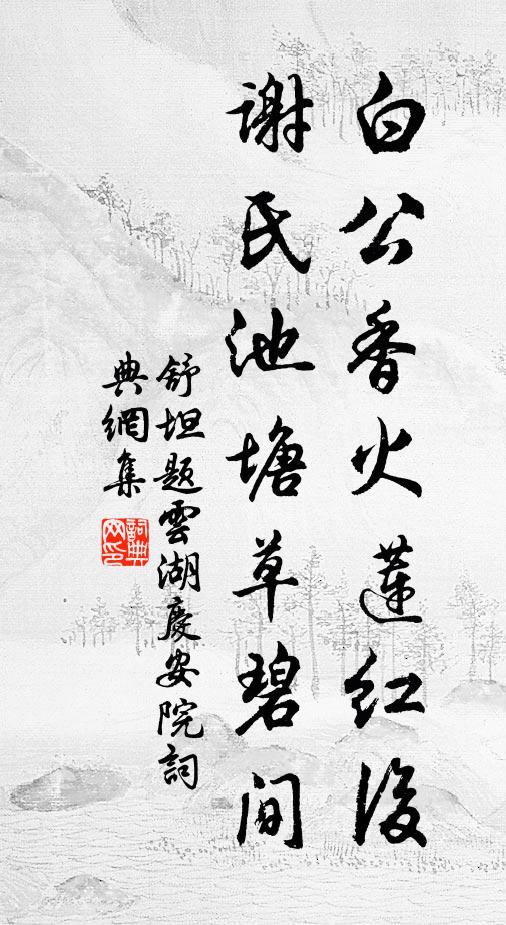 白公香火蓮红後
謝氏池塘草碧间
舒坦題雲湖慶安院詞
典網集
詞典网印